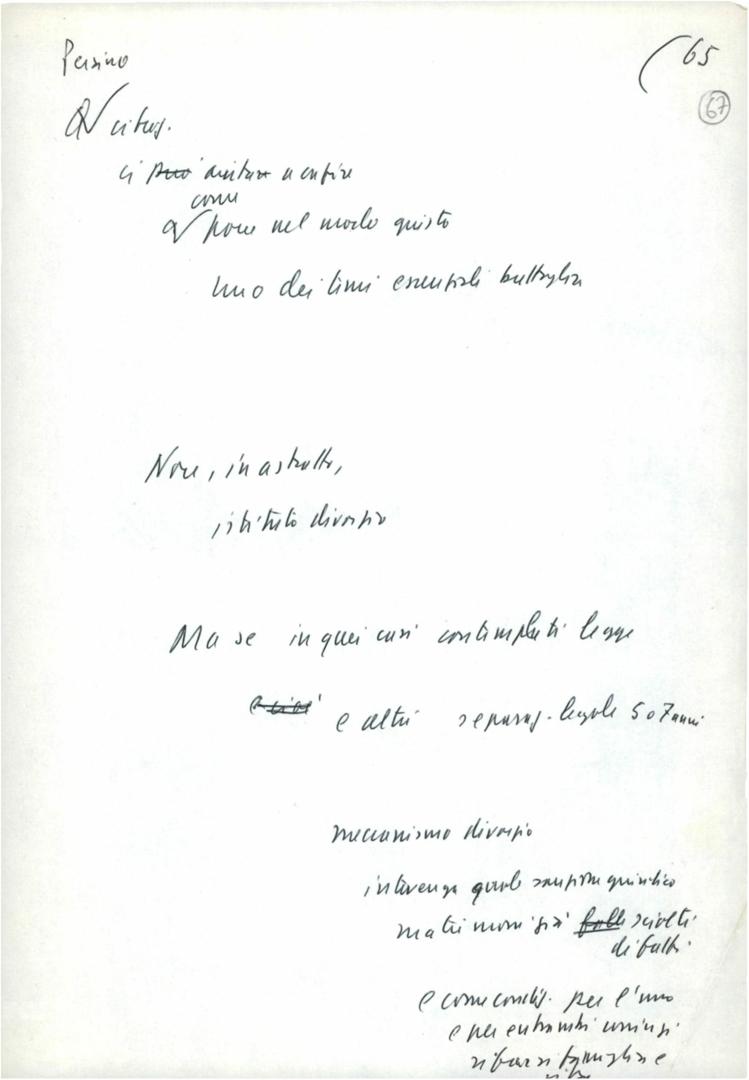 Persino
65
67
citaz.
ci può aiutare a capire
come
porre nel modo giusto
uno dei temi essenziali battaglia
Non, in astratto,
istituto divorzio
Ma se in quei casi contemplati legge
e cioè
e altri separaz. legale 5 o 7 anni
meccanismo divorzio
intervenga quale sanzione giuridica
matrimoni già falli sciolti
di fatto
e come condiz. per l'uno
e per entrambi coniugi
rifarsi famiglia e